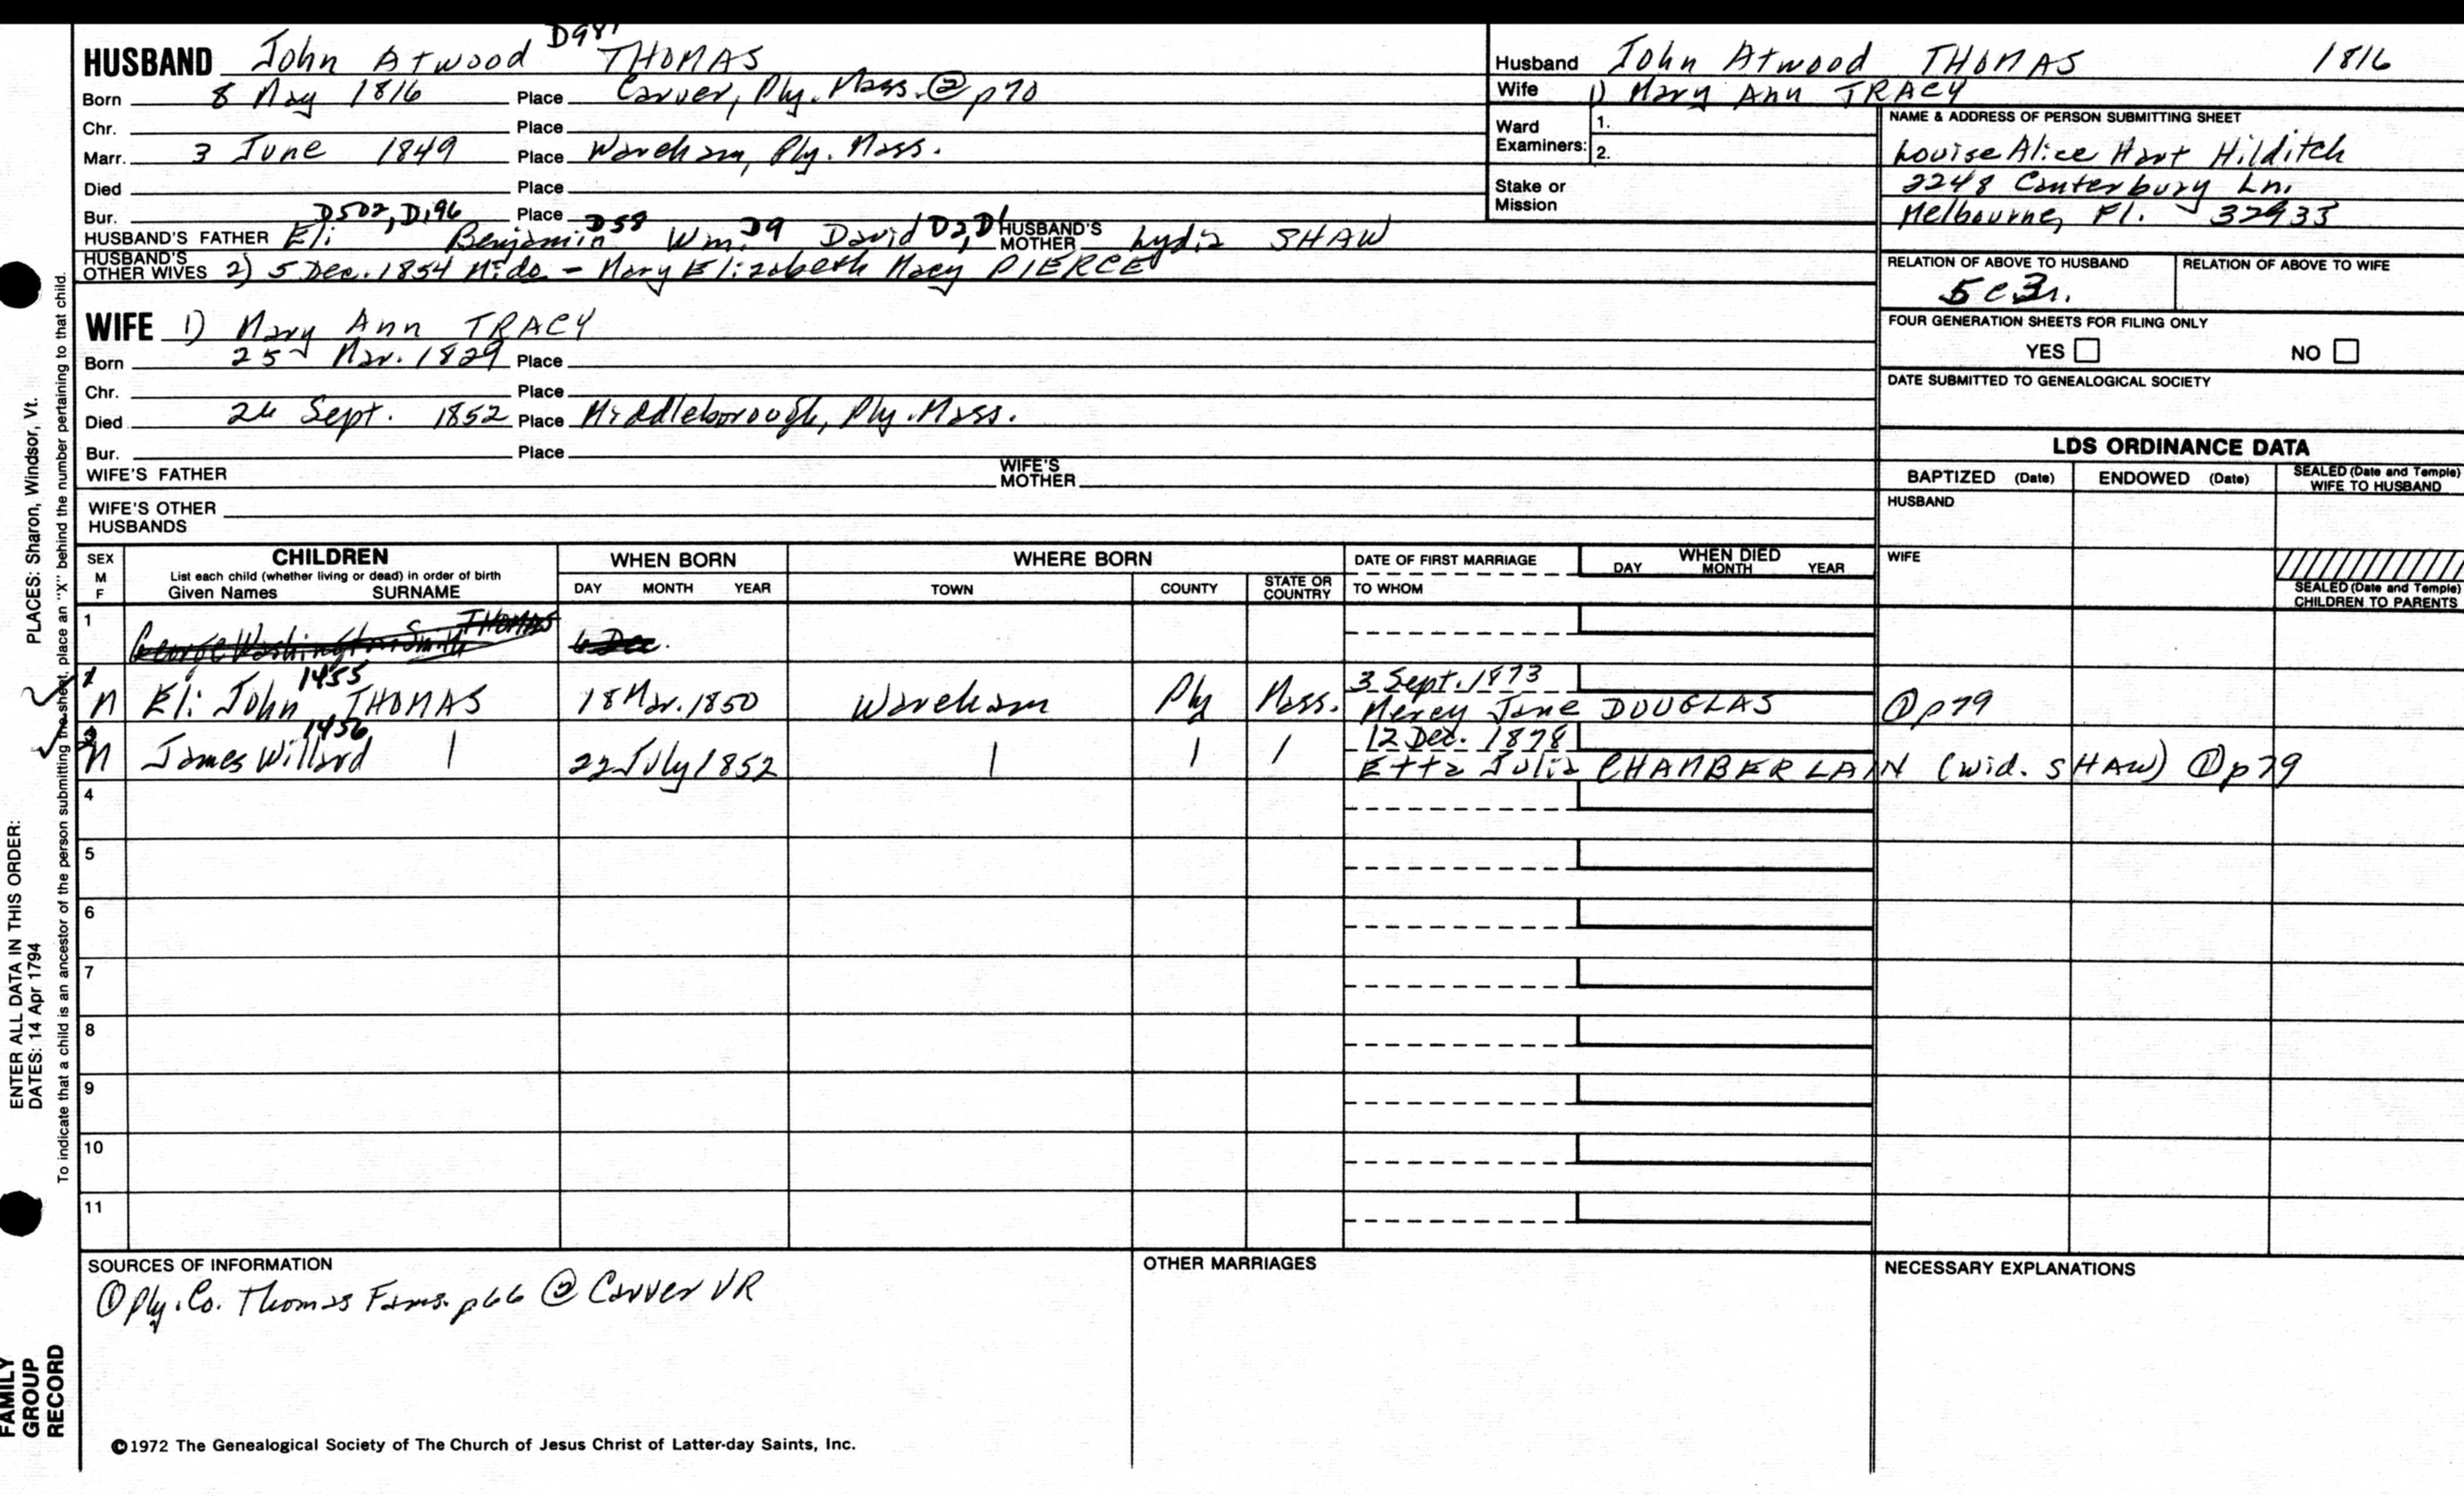 D981
HUSBAND John Atwood THOMAS
Born 8 May 1816 Place Carver, Ply. Mass. ② p70
Chr. Place
Marr. 3 June 1849 Place Wareham, Ply. Mass.
Died Place
Bur. Place
D502, D196 D58 D9 D2, D1
HUSBAND'S FATHER Eli Benjamin Wm. David HUSBAND'S MOTHER Lydia SHAW
HUSBAND'S OTHER WIVES 2) 5 Dec. 1854 Mido - Mary Elizabeth Macy PIERCE
WIFE 1) Mary Ann TRACY
Born 25 Mar. 1829 Place
Chr. Place
Died 26 Sept. 1852 Place Middleborough, Ply. Mass.
Bur. Place
WIFE'S FATHER WIFE'S MOTHER
WIFE'S OTHER HUSBANDS
Husband John Atwood THOMAS 1816
Wife 1) Mary Ann TRACY
Ward Examiners: 1.
2.
Stake or Mission
NAME & ADDRESS OF PERSON SUBMITTING SHEET
Louise Alice Hart Hilditch
2248 Canterbury Ln.
Melbourne, Fl. 32935
RELATION OF ABOVE TO HUSBAND RELATION OF ABOVE TO WIFE
5c3r.
FOUR GENERATION SHEETS FOR FILING ONLY
YES NO
DATE SUBMITTED TO GENEALOGICAL SOCIETY
LDS ORDINANCE DATA
BAPTIZED (Date) ENDOWED (Date) SEALED (Date and Temple) WIFE TO HUSBAND
HUSBAND
WIFE
SEALED (Date and Temple) CHILDREN TO PARENTS
SEX M F CHILDREN WHEN BORN WHERE BORN DATE OF FIRST MARRIAGE WHEN DIED
List each child (whether living or dead) in order of birth
Given Names SURNAME DAY MONTH YEAR TOWN COUNTY STATE OR COUNTRY TO WHOM DAY MONTH YEAR
1 George Washington Smith THOMAS 6 Dec.
1455 3 Sept. 1873
1 M Eli John THOMAS 18 Mar. 1850 Wareham Ply Mass. Mercy Jane DOUGLAS ① p79
1456 12 Dec. 1878
2 M James Willard | 22 July 1852 | | | Etta Julia CHAMBERLAIN (wid. SHAW) ① p79
4
5
6
7
8
9
10
11
SOURCES OF INFORMATION OTHER MARRIAGES NECESSARY EXPLANATIONS
① Ply. Co. Thomas Fams. p66 ② Carver VR
©1972 The Genealogical Society of The Church of Jesus Christ of Latter-day Saints, Inc.
ENTER ALL DATA IN THIS ORDER: PLACES: Sharon, Windsor, Vt.
DATES: 14 Apr 1794
To indicate that a child is an ancestor of the person submitting the sheet, place an "X" behind the number pertaining to that child.
FAMILY
GROUP
RECORD